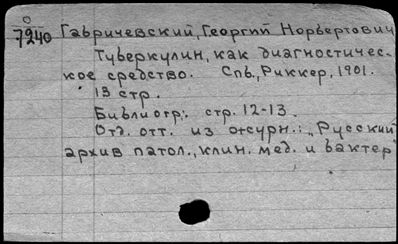 О
7240 Габричевский, Георгий Норбертович
Туберкулин, как диагностичес-
кое средство. Спб., Риккер, 1901.
13 стр.
Библиогр.: стр. 12-13.
Отд. отт. из журн.: „Русский
архив патол., клин. мед. и бактер"